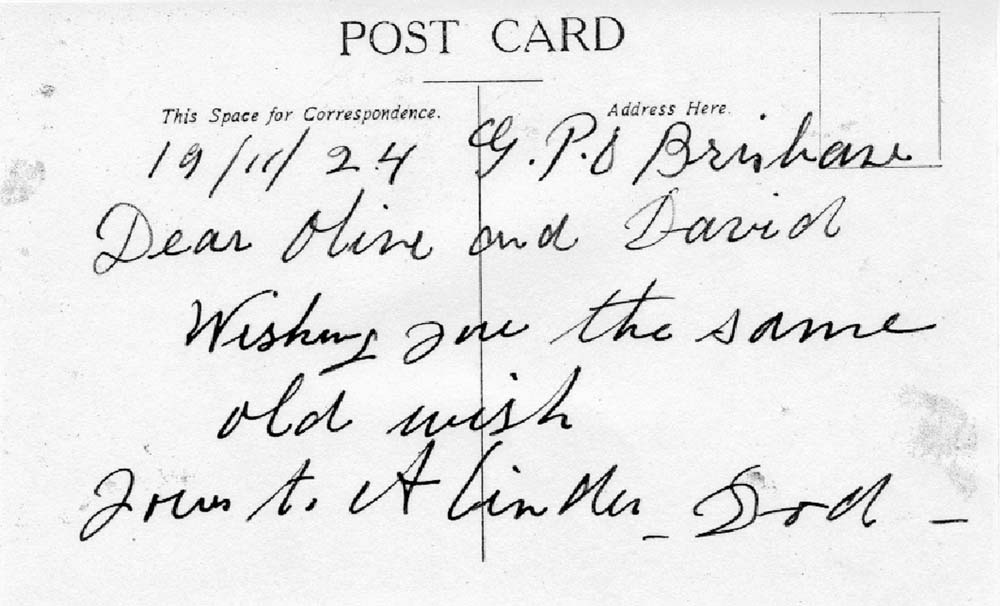 POST CARD
This Space for Correspondence.
Address Here.
19/11/24 G.P.O Brisbane
Dear Olive and David
Wishing you the same
old wish
Yours to A Cinder _ Dod _